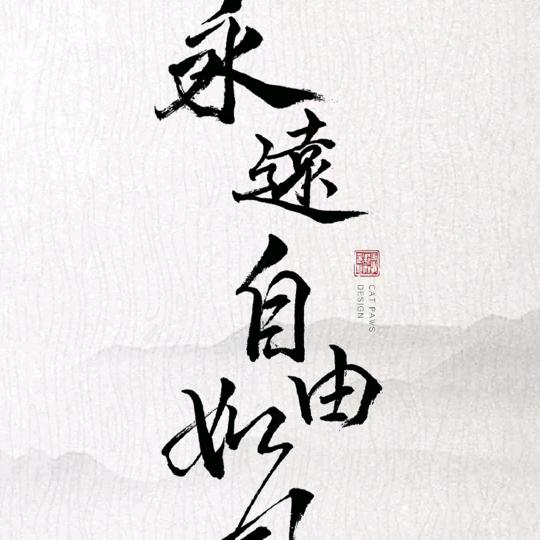 永遠自由如
CAT PAWS
DESIGN